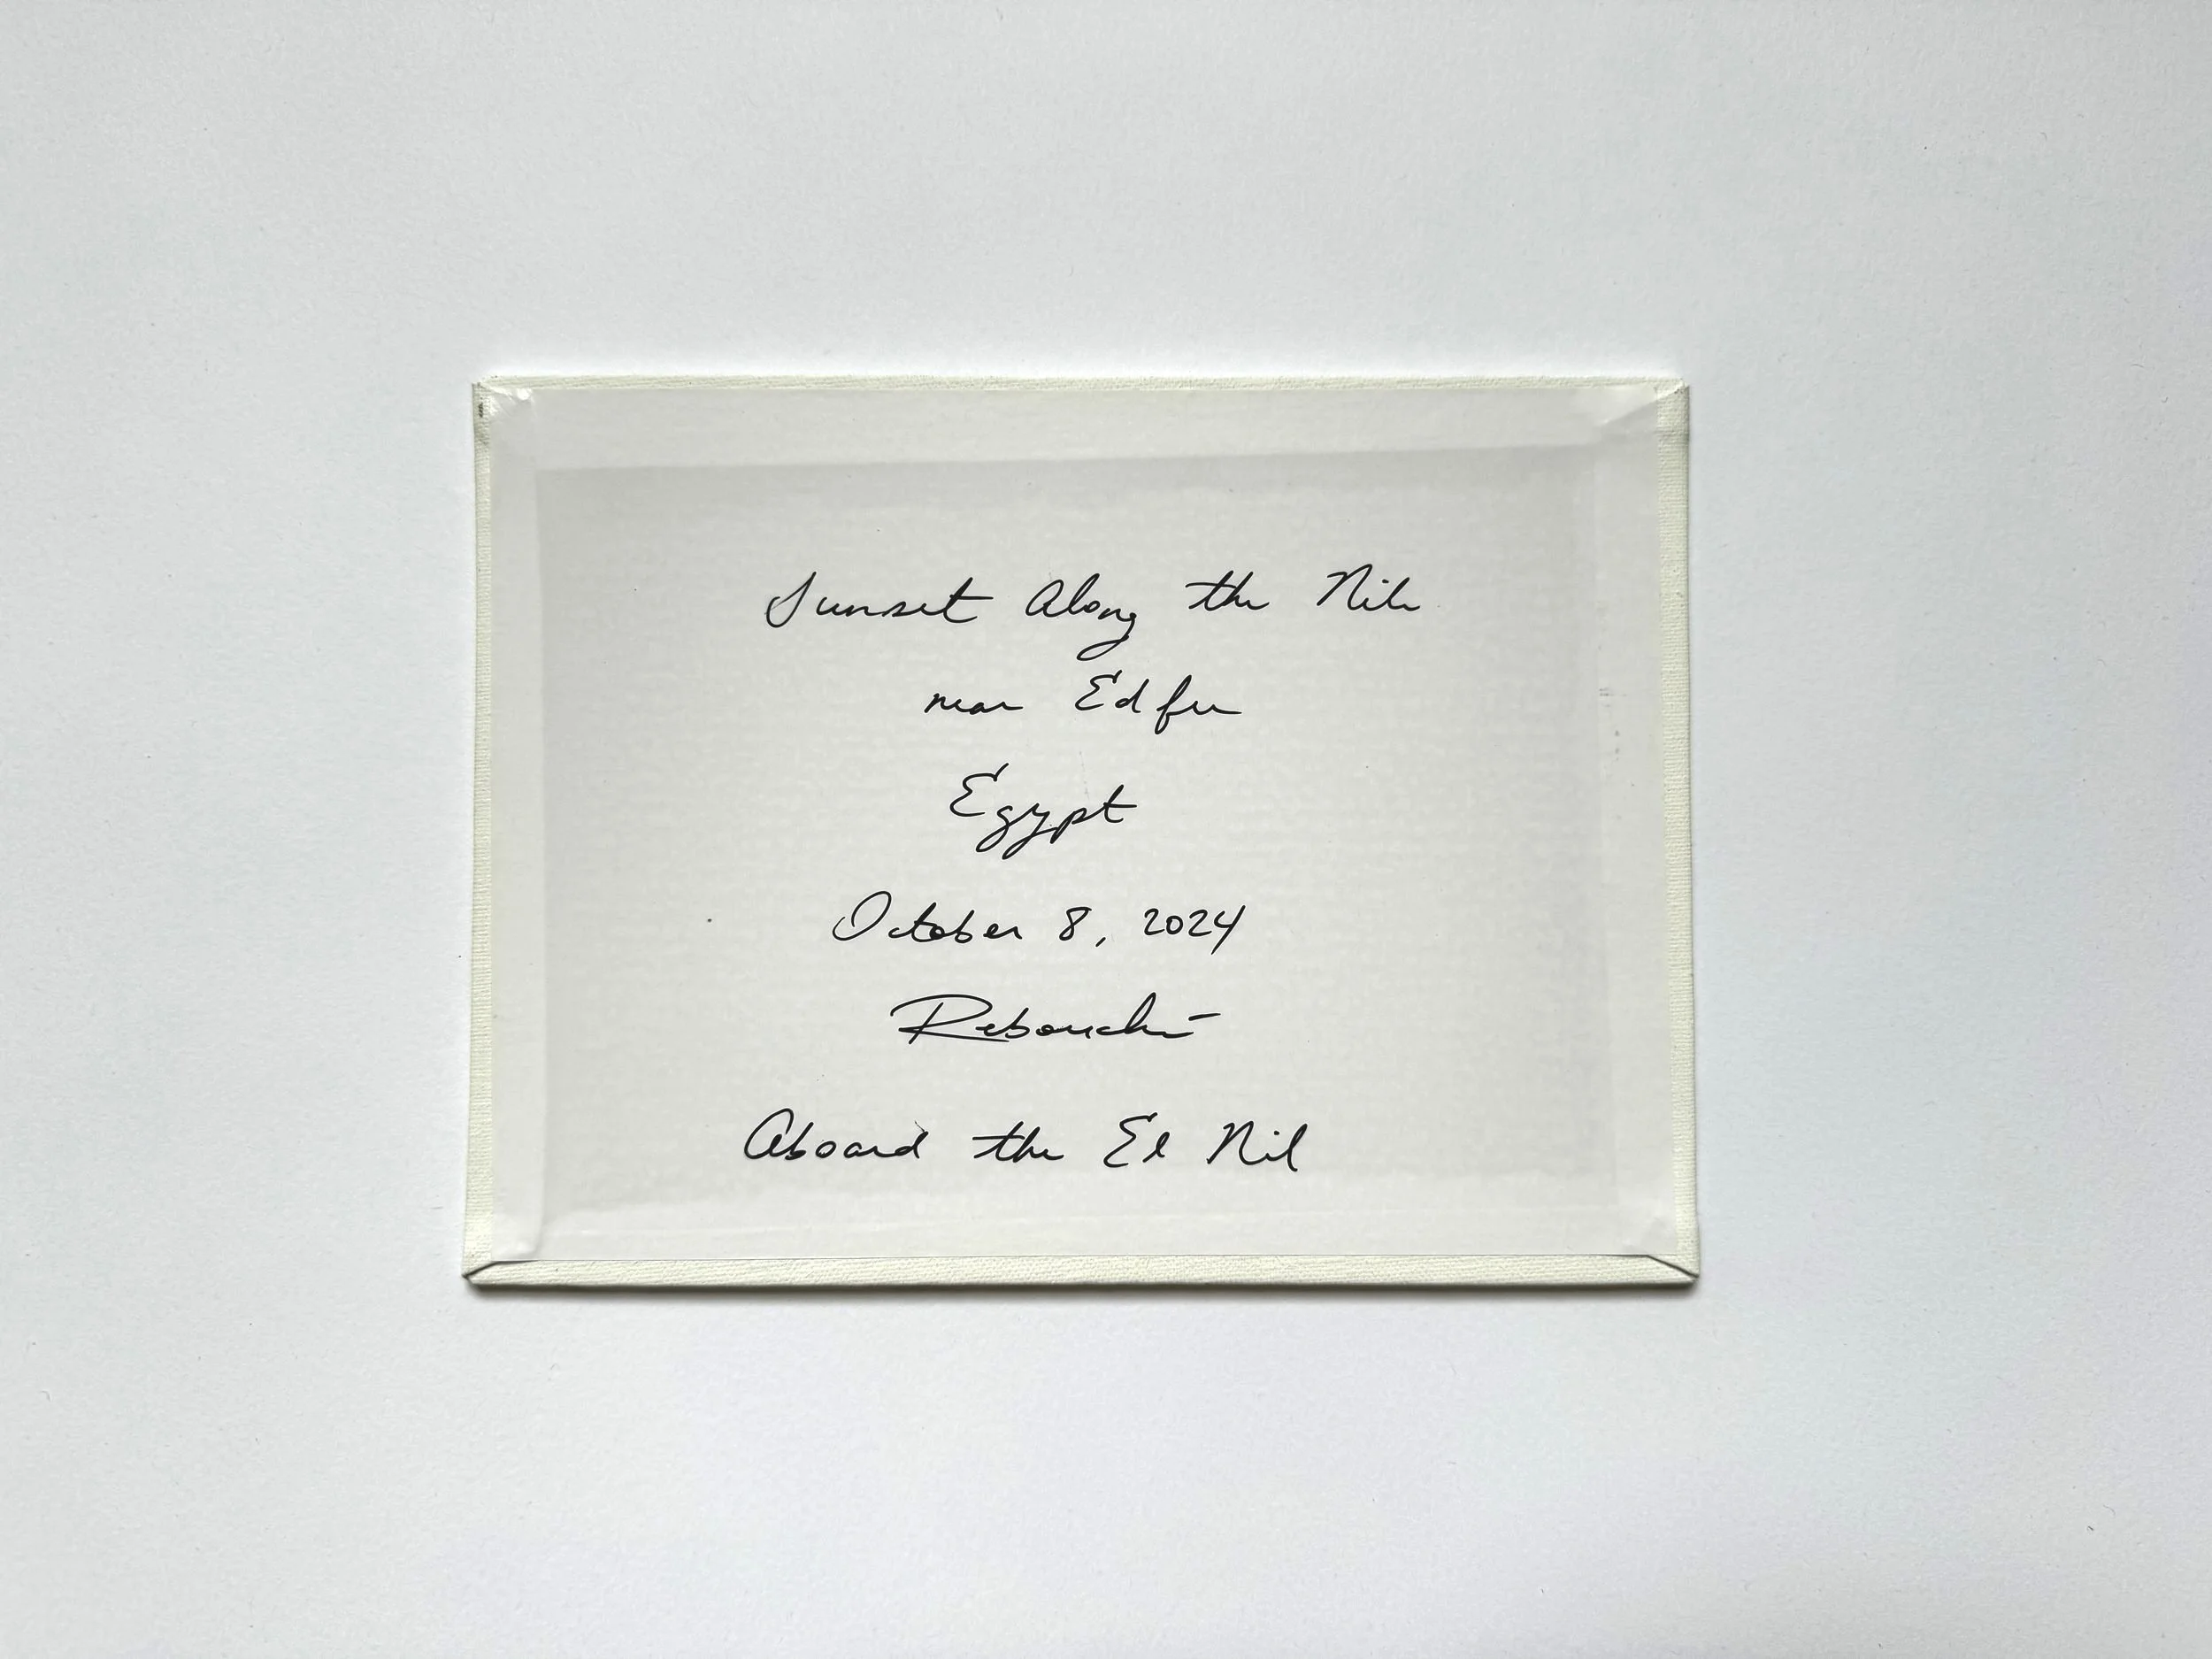 Sunset Along the Nile
near Edfu
Egypt
October 8, 2024
Rebouché
Aboard the El Nil